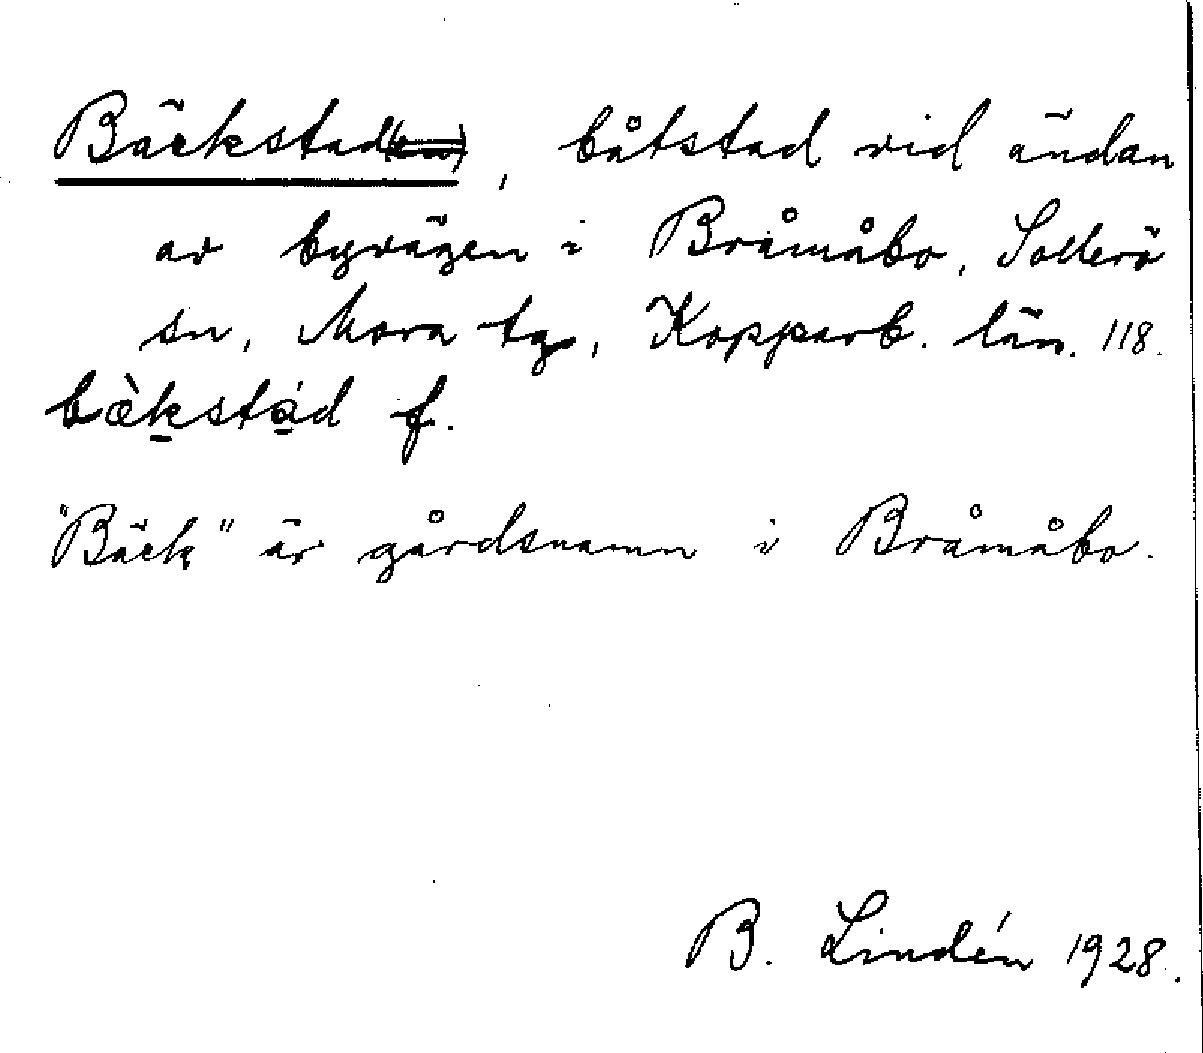 Bäckstad(en), båtstad vid ändan
av byvägen i Bråmåbo, Sollerö
sn, Mora tg, Kopparb. län. 118.
bæ̀k̠stá̠d f.
"Bäck" är gårdsnamn i Bråmåbo.
B. Lindén 1928.